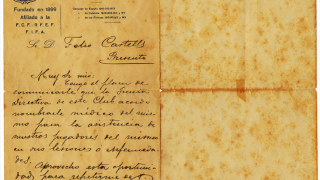 Fundado en 1899
Afiliado a la
F.C.F.-R.F.E.F.
F.I.F.A.
Campeón de España
Sr. D. Felio Castells
Presente
Muy Sr. mío:
Tengo el placer de
comunicarle que la Junta
Directiva de este Club acordó
nombrarle médico del mis-
mo para la asistencia de
nuestros jugadores del mismo
en sus lesiones o enfermeda-
des.
Aprovecho esta oportuni-
dad, para repetirme de V.